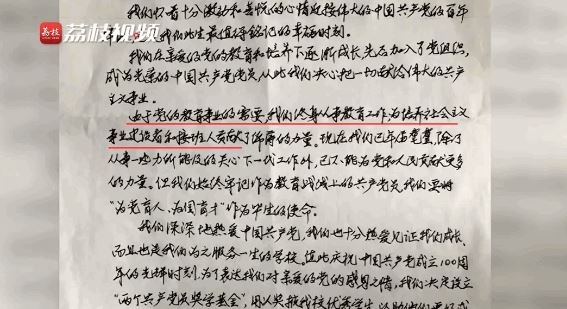 荔枝
荔枝视频
我们怀着十分激动和喜悦的心情迎接伟大的中国共产党的百年
我们此生最值得铭记的幸福时刻。
我们在亲爱的党的教育和培养下逐渐成长,先后加入了党组织,
成为光荣的中国共产党党员,从此我们决心把一切献给伟大的共产
主义事业。
由于党的教育事业的需要,我们终身从事教育工作,为培养社会主义
事业建设者和接班人贡献了绵薄的力量。现在我们已年届耄耋,除了
从事一些力所能及的关心下一代工作外,已不能为党和人民贡献更多
的力量。但我们始终牢记作为教育战线上的共产党员,我们要将
“为党育人、为国育才”作为毕生的使命。
我们深深地热爱中国共产党,我们也十分热爱见证我们成长、
而且也是我们为之服务一生的学校。值此庆祝中国共产党成立100周
年的光辉时刻,为了表达我们对亲爱的党的感恩之情,我们决定设立
“两个共产党员奖学基金”,用以奖掖我校优秀学生